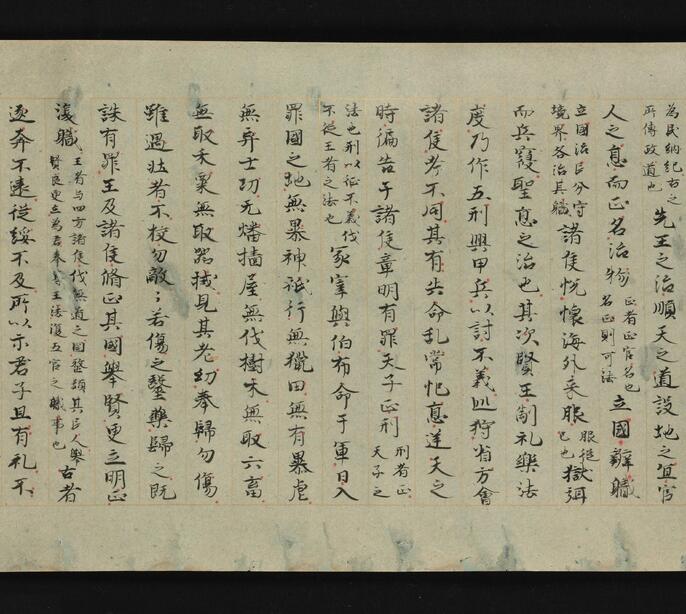 為民納紀古之
所傳政道也
先王之治順天之道設地之宜官
人之悳而正名治物
正者正官名也
名正則可法
立國辭職
立國治民分守
境界各治其職
諸侯悅懷海外来服
服從
己也
獄弭
而兵寢聖悳之治也其次賢王制礼樂法
度乃作五刑興甲兵以討不義巡狩省方會
諸侯考不同其有失命乱常悖悳逆天之
時徧告于諸侯章明有罪天子正刑
刑者正
天子之
法也刑以征不義伐
不從王者之法也
冢宰與伯布命于軍曰入
罪國之地無暴神祇行無獵田無有暴虐
無弃士功无燔墻屋無伐樹木無取六畜
無取禾粟無取器械見其老幼奉歸勿傷
雖遇壮者不挍勿敵〻若傷之醫藥歸之既
誅有罪王及諸侯脩正其國舉賢更立明正
復職
王者与四方諸侯伐無道之国整頓其民人舉
賢良更立為君奉王法復五官之職事也
古者
逐奔不遠從綏不及所以示君子且有礼不